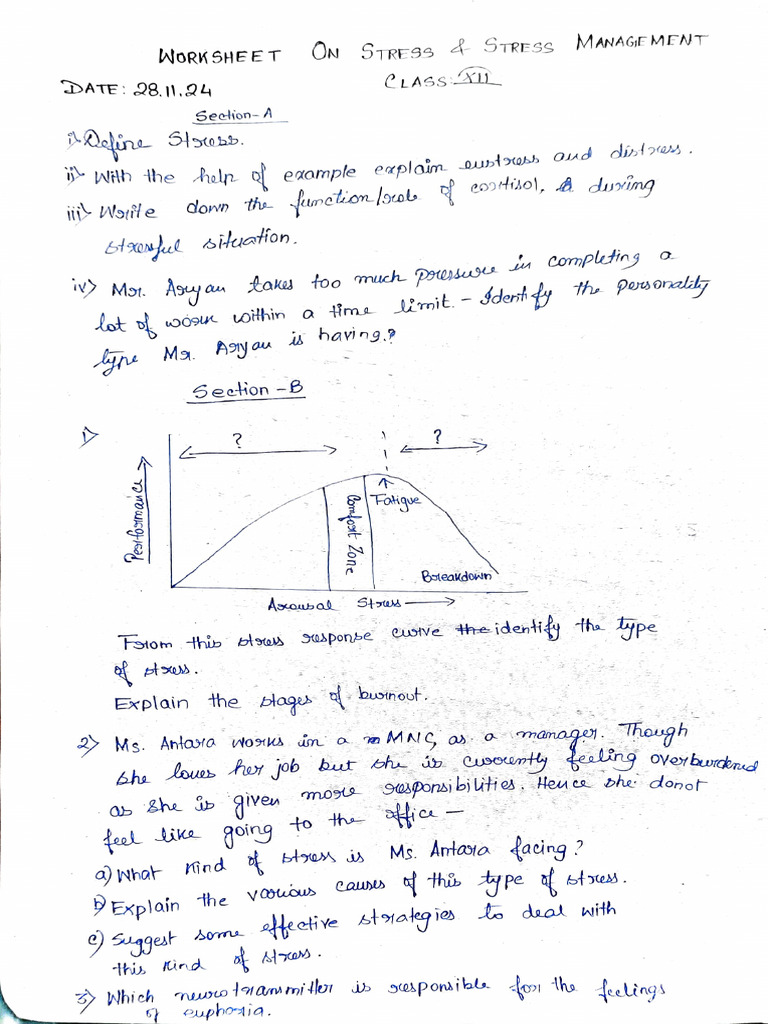 WORKSHEET ON STRESS & STRESS MANAGEMENT
DATE: 28.11.24 CLASS: XII
Section-A
i) Define Stress.
ii) With the help of example explain eustress and distress.
iii) Write down the function/role of cortisol, during
stressful situation.
iv) Mr. Aryan takes too much pressure in completing a
lot of work within a time limit. - Identify the personality
type Mr. Aryan is having?
Section-B
1)
? ?
Performance
Comfort Zone
Fatigue
Breakdown
Arousal Stress
From this stress response curve the identify the type
of stress.
Explain the stages of burnout.
2) Ms. Antara works in a MNC, as a manager. Though
she loves her job but she is currently feeling overburdened
as she is given more responsibilities. Hence she donot
feel like going to the office —
a) What kind of stress is Ms. Antara facing?
b) Explain the various causes of this type of stress.
c) Suggest some effective strategies to deal with
this kind of stress.
3) Which neurotransmitter is responsible for the feelings
of euphoria.